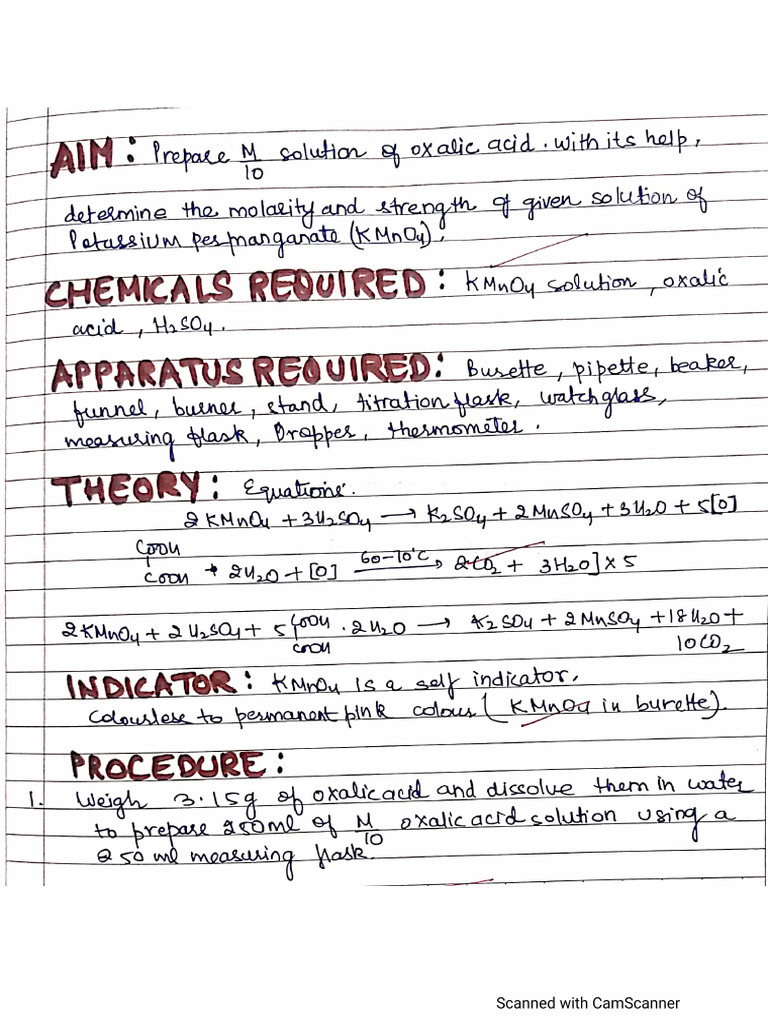 AIM: Prepare M/10 solution of oxalic acid. With its help,
determine the molarity and strength of given solution of
Potassium permanganate (KMnO4).
CHEMICALS REQUIRED: KMnO4 solution, oxalic
acid, H2SO4.
APPARATUS REQUIRED: Burette, pipette, beaker,
funnel, burner, stand, titration flask, watch glass,
measuring flask, Dropper, thermometer.
THEORY: Equations:
2KMnO4 + 3H2SO4 → K2SO4 + 2MnSO4 + 3H2O + 5[O]
COOH
COOH + 2H2O + [O] 60-70°C → 2CO2 + 3H2O] × 5
2KMnO4 + 2H2SO4 + 5 COOH · 2H2O → K2SO4 + 2MnSO4 + 18H2O +
COOH 10CO2
INDICATOR: KMnO4 is a self indicator.
Colourless to permanent pink colour (KMnO4 in burette).
PROCEDURE:
1. Weigh 3.15g of oxalic acid and dissolve them in water
to prepare 250ml of M/10 oxalic acid solution using a
250 ml measuring flask.
Scanned with CamScanner